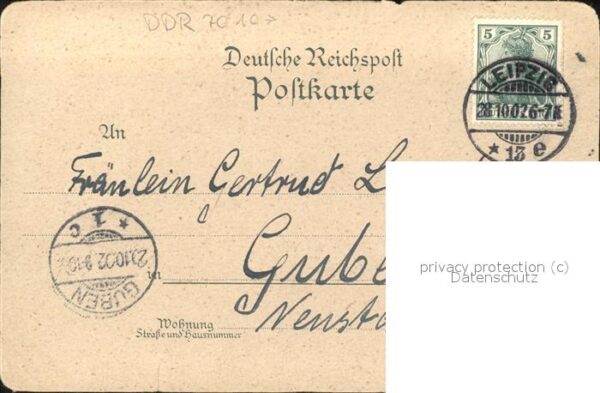 DDR 70 10,-
Deutsche Reichspost
Postkarte
5 5
LEIPZIG
28.10.02.6-7
* 13 e
An
Fräulein Gertrud L
* 1 c
GUBEN
in Gube
Neust
Wohnung
Straße und Hausnummer
privacy protection (c)
Datenschutz